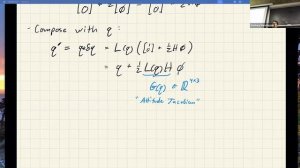 [0] 2[ϕ] [0] 2
- Compose with q :
q' = q∘δq = L(q) ([1/0] + ½Hϕ)
= q + ½L(q)H ϕ
G(q) ∈ ℝ^4×3
"Attitude Jacobian"